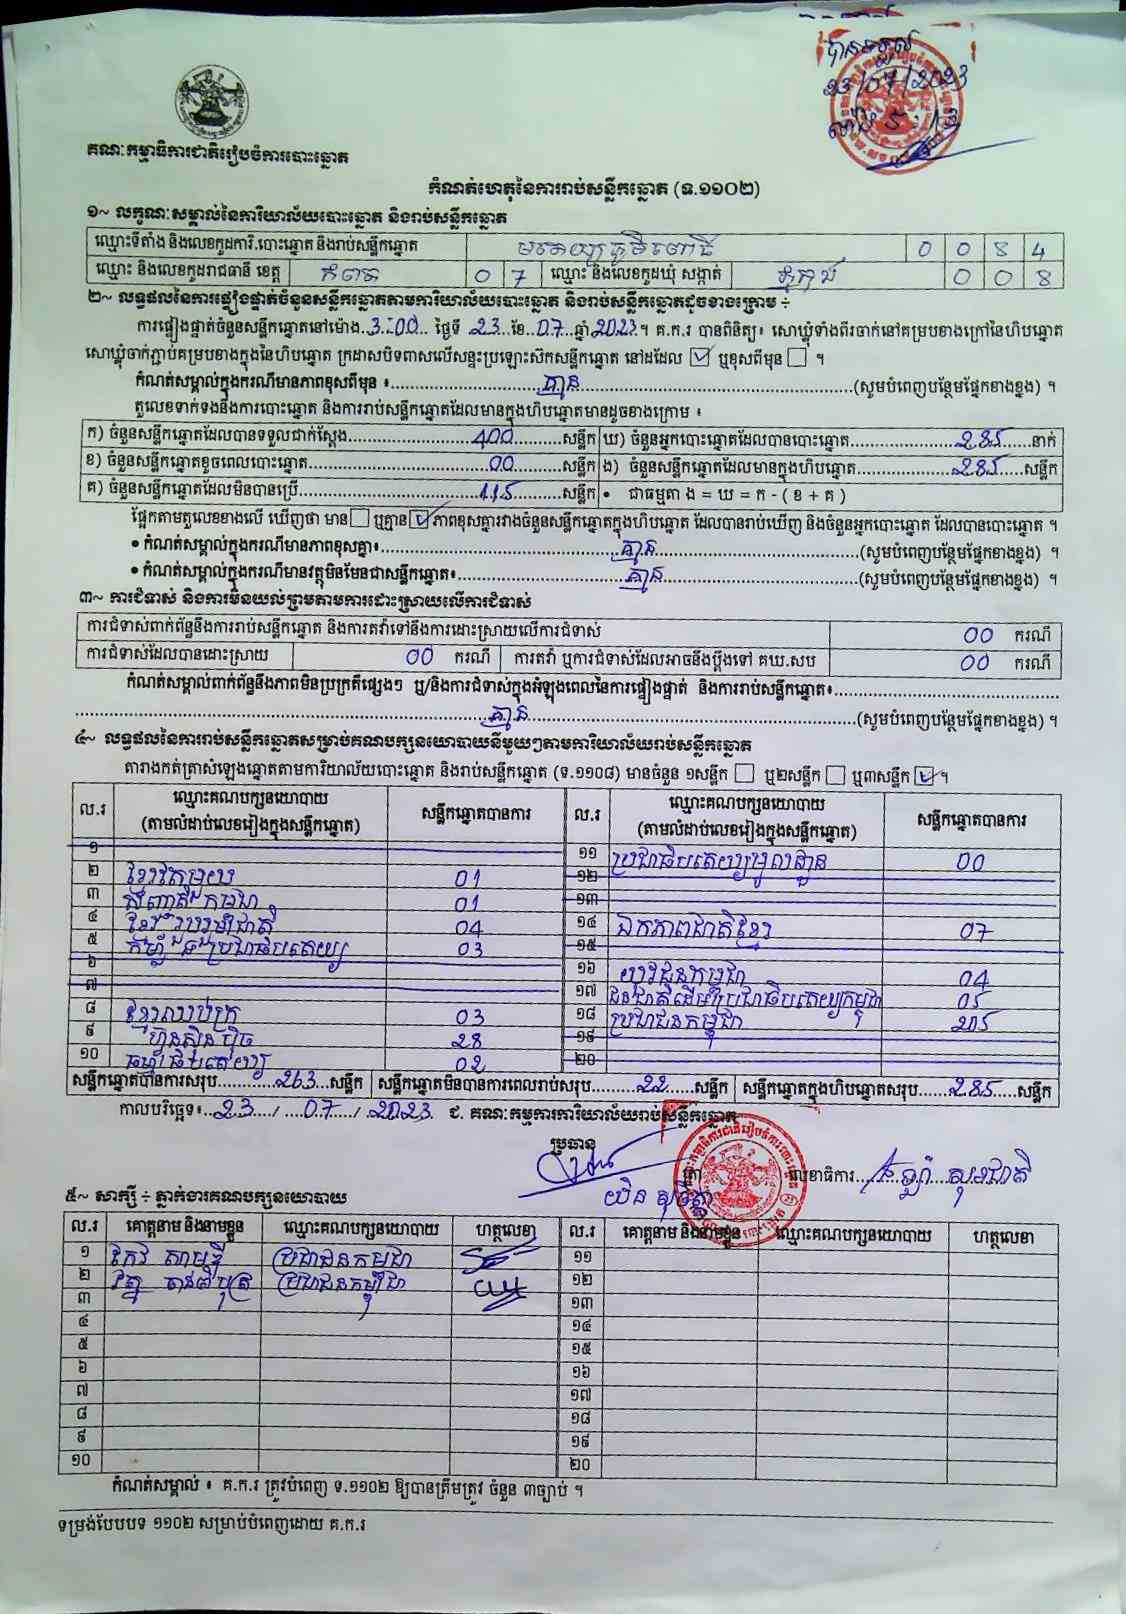 បានទទួល
23/07/2023
គណៈកម្មាធិការជាតិរៀបចំការបោះឆ្នោត
កំណត់ហេតុនៃការរាប់សន្លឹកឆ្នោត (ទ.១១០២)
១~ លក្ខណៈសម្គាល់នៃការិយាល័យបោះឆ្នោត និងរាប់សន្លឹកឆ្នោត
ឈ្មោះទីតាំង និងលេខកូដការិ.បោះឆ្នោត និងរាប់សន្លឹកឆ្នោត មត្តេយ្យភូមិពោធិ៍ 0 0 8 4
ឈ្មោះ និងលេខកូដរាជធានី ខេត្ត កំពត 0 7 ឈ្មោះ និងលេខកូដឃុំ សង្កាត់ 0 0 8
២~ លទ្ធផលនៃការផ្ទៀងផ្ទាត់ចំនួនសន្លឹកឆ្នោតតាមការិយាល័យបោះឆ្នោត និងរាប់សន្លឹកឆ្នោតដូចខាងក្រោម ÷
ការផ្ទៀងផ្ទាត់ចំនួនសន្លឹកឆ្នោតនៅម៉ោង.3:00... ថ្ងៃទី .23..ខែ..07..ឆ្នាំ2023។ គ.ក.រ បានពិនិត្យ៖ សោឃ្លុំទាំងពីរចាក់នៅគម្របខាងក្រៅនៃហិបឆ្នោត
សោឃ្លុំចាក់ភ្ជាប់គម្របខាងក្នុងនៃហិបឆ្នោត ក្រដាសបិទពាសលើសន្ទះប្រឡោះស៊កសន្លឹកឆ្នោត នៅដដែល ☑ ឬខុសពីមុន ☐ ។
កំណត់សម្គាល់ក្នុងករណីមានភាពខុសពីមុន ៖......គ្មាន......(សូមបំពេញបន្ថែមផ្នែកខាងខ្នង) ។
តួលេខទាក់ទងនឹងការបោះឆ្នោត និងការរាប់សន្លឹកឆ្នោតដែលមានក្នុងហិបឆ្នោតមានដូចខាងក្រោម ៖
ក) ចំនួនសន្លឹកឆ្នោតដែលបានទទួលជាក់ស្តែង......400......សន្លឹក ឃ) ចំនួនអ្នកបោះឆ្នោតដែលបានបោះឆ្នោត......285......នាក់
ខ) ចំនួនសន្លឹកឆ្នោតខូចពេលបោះឆ្នោត......00......សន្លឹក ង) ចំនួនសន្លឹកឆ្នោតដែលមានក្នុងហិបឆ្នោត......285......សន្លឹក
គ) ចំនួនសន្លឹកឆ្នោតដែលមិនបានប្រើ......115......សន្លឹក • ជាធម្មតា ង = ឃ = ក - ( ខ + គ )
ផ្អែកតាមតួលេខខាងលើ ឃើញថា មាន ☐ ឬគ្មាន ☑ ភាពខុសគ្នារវាងចំនួនសន្លឹកឆ្នោតក្នុងហិបឆ្នោត ដែលបានរាប់ឃើញ និងចំនួនអ្នកបោះឆ្នោត ដែលបានបោះឆ្នោត ។
• កំណត់សម្គាល់ក្នុងករណីមានភាពខុសគ្នា៖......គ្មាន......(សូមបំពេញបន្ថែមផ្នែកខាងខ្នង) ។
• កំណត់សម្គាល់ក្នុងករណីមានវត្ថុមិនមែនជាសន្លឹកឆ្នោត៖......គ្មាន......(សូមបំពេញបន្ថែមផ្នែកខាងខ្នង) ។
៣~ ការជំទាស់ និងការមិនយល់ព្រមតាមការដោះស្រាយលើការជំទាស់
ការជំទាស់ពាក់ព័ន្ធនឹងការរាប់សន្លឹកឆ្នោត និងការតវ៉ាទៅនឹងការដោះស្រាយលើការជំទាស់ 00 ករណី
ការជំទាស់ដែលបានដោះស្រាយ 00 ករណី ការតវ៉ា ឬការជំទាស់ដែលអាចនឹងប្តឹងទៅ គឃ.សប 00 ករណី
កំណត់សម្គាល់ពាក់ព័ន្ធនឹងភាពមិនប្រក្រតីផ្សេងៗ ឬ/និងការជំទាស់ក្នុងអំឡុងពេលនៃការផ្ទៀងផ្ទាត់ និងការរាប់សន្លឹកឆ្នោត៖......
......គ្មាន......(សូមបំពេញបន្ថែមផ្នែកខាងខ្នង) ។
៤~ លទ្ធផលនៃការរាប់សន្លឹកឆ្នោតសម្រាប់គណបក្សនយោបាយនីមួយៗតាមការិយាល័យរាប់សន្លឹកឆ្នោត
តារាងកត់ត្រាសំឡេងឆ្នោតតាមការិយាល័យបោះឆ្នោត និងរាប់សន្លឹកឆ្នោត (ទ.១១០៨) មានចំនួន ១សន្លឹក ☐ ឬ២សន្លឹក ☐ ឬ៣សន្លឹក ☑ ។
ល.រ ឈ្មោះគណបក្សនយោបាយ (តាមលំដាប់លេខរៀងក្នុងសន្លឹកឆ្នោត) សន្លឹកឆ្នោតបានការ ល.រ ឈ្មោះគណបក្សនយោបាយ (តាមលំដាប់លេខរៀងក្នុងសន្លឹកឆ្នោត) សន្លឹកឆ្នោតបានការ
១ ១១ ប្រជាធិបតេយ្យមូលដ្ឋាន 00
២ ខ្មែរតែមួយ 01 ១២
៣ សញ្ជាតិកម្ពុជា 01 ១៣
៤ ខ្មែររួបរួមជាតិ 04 ១៤ ឯកភាពជាតិខ្មែរ 07
៥ កម្លាំងប្រជាធិបតេយ្យ 03 ១៥
៦ ១៦ យុវជនកម្ពុជា 04
៧ ១៧ ជនជាតិដើមប្រជាធិបតេយ្យកម្ពុជា 05
៨ ខ្មែរឈប់ក្រ 03 ១៨ ប្រជាជនកម្ពុជា 205
៩ ហ៊្វុនស៊ិនប៉ិច 28 ១៩
១០ ធម្មាធិបតេយ្យ 02 ២០
សន្លឹកឆ្នោតបានការសរុប......263......សន្លឹក សន្លឹកឆ្នោតមិនបានការពេលរាប់សរុប......22......សន្លឹក សន្លឹកឆ្នោតក្នុងហិបឆ្នោតសរុប......285......សន្លឹក
កាលបរិច្ឆេទ៖...23.../...07.../...2023 ជ. គណៈកម្មការការិយាល័យរាប់សន្លឹកឆ្នោត
ប្រធាន
លេខាធិការ
៥~ សាក្សី ÷ ភ្នាក់ងារគណបក្សនយោបាយ
ល.រ គោត្តនាម និងនាមខ្លួន ឈ្មោះគណបក្សនយោបាយ ហត្ថលេខា ល.រ គោត្តនាម និងនាមខ្លួន ឈ្មោះគណបក្សនយោបាយ ហត្ថលេខា
១ ប្រជាជនកម្ពុជា ១១
២ ប្រជាជនកម្ពុជា ១២
៣ ១៣
៤ ១៤
៥ ១៥
៦ ១៦
៧ ១៧
៨ ១៨
៩ ១៩
១០ ២០
កំណត់សម្គាល់ ៖ គ.ក.រ ត្រូវបំពេញ ទ.១១០២ ឱ្យបានត្រឹមត្រូវ ចំនួន ៣ច្បាប់ ។
ទម្រង់បែបបទ ១១០២ សម្រាប់បំពេញដោយ គ.ក.រ